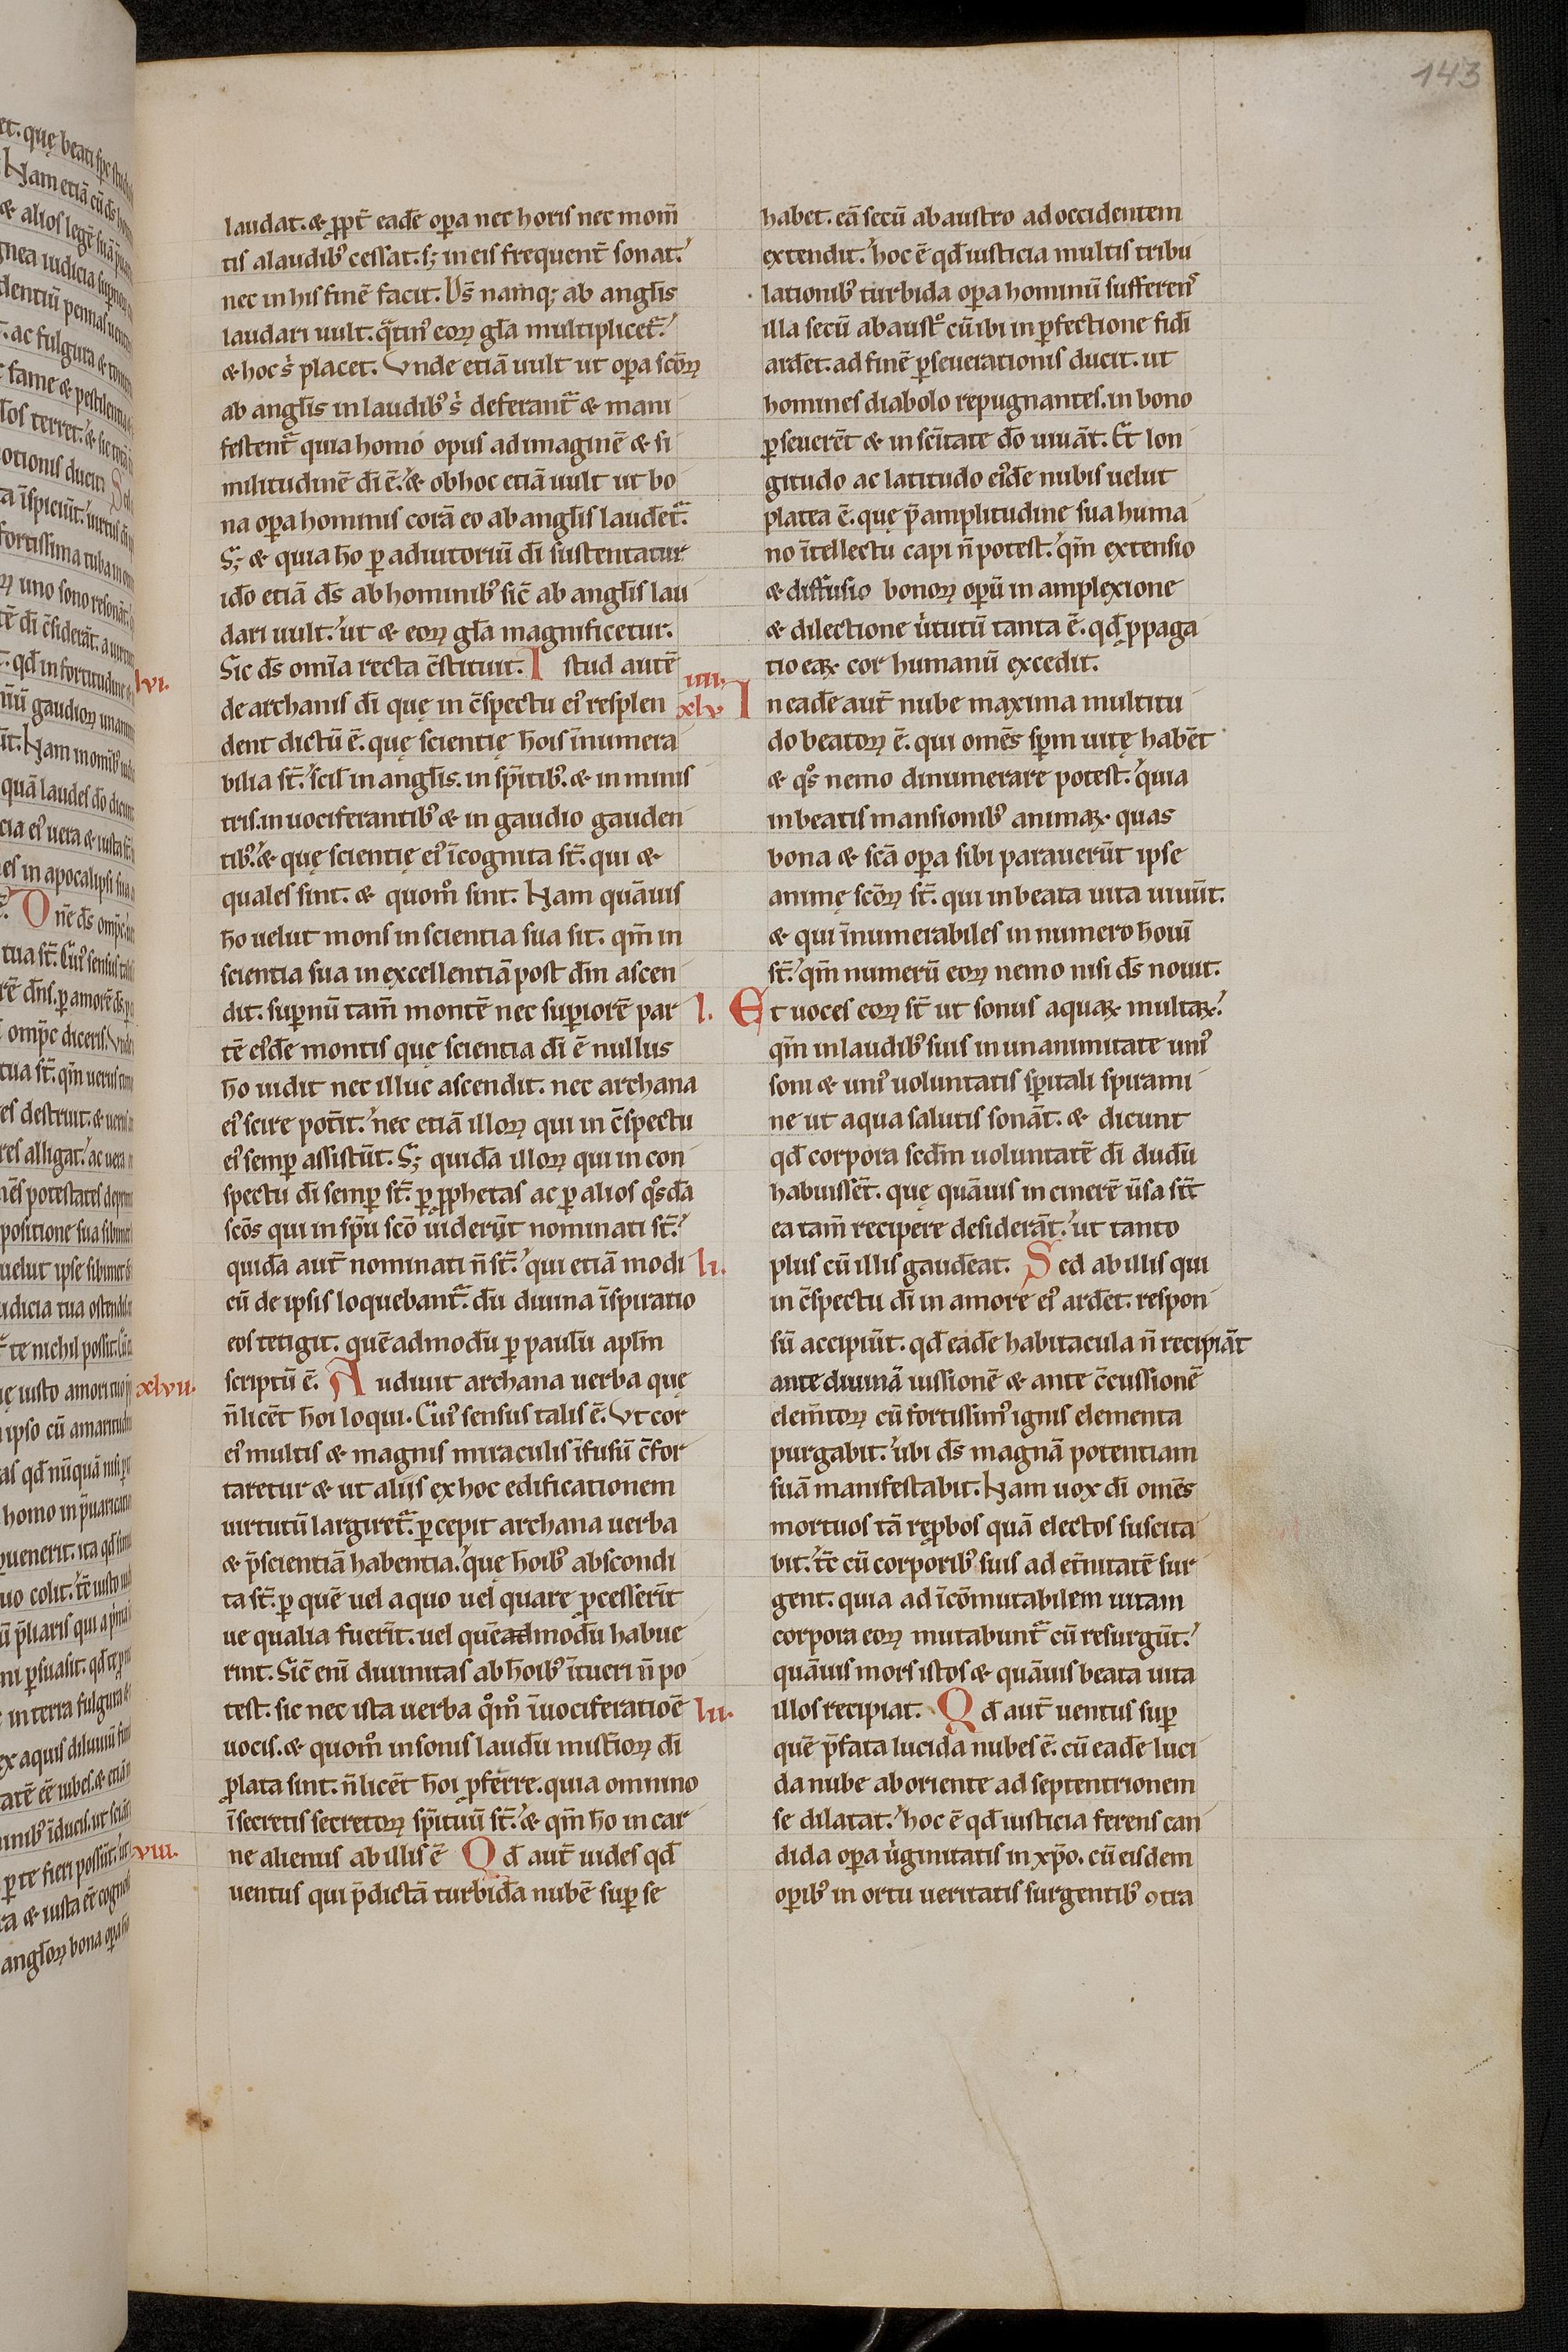 143
laudat. & ꝓpt̄ eadē oꝑa nec horis nec mom̄
tis a laudib᷒ cessat. s; in eis frequent̄ sonat.
nec in his finē facit. Ds̄ namq; ab angl̄is
laudari uult. q̄tin᷒ eoꝝ gl̄a multiplicet᷑.
& hoc s̓ placet. Vnde etiā uult ut oꝑa scōꝝ
ab angl̄is in laudib᷒ s̓ deferant᷑ & mani
festent᷑ quia homo opus ad imaginē & si
militudinē dī ē. & ob hoc etiā uult ut bo
na oꝑa hominis corā eo ab angl̄is laudet᷑.
S; & quia ho̅ ꝑ adiutoriū dī sustentatur
ido̅ etiā ds̄ ab hominib᷒ sic̄ ab angl̄is lau
dari uult. ut & eoꝝ gl̄a magnificetur.
Sic ds̄ om̄ia recta c̄stituit. Istud autē
iiii.
de archanis dī quę in c̄spectu ei᷒ resplen
dent dictū ē. quę scientię ho̅is īnumera
bilia st̄. scil̄ in angl̄is. in sp̄itib᷒. & in minis
tris. in uociferantib᷒ & in gaudio gauden
tib᷒. & quę scientię ei᷒ īcognita st̄. qui &
quales sint. & quom̊ sint. Nam quāuis
ho̅ uelut mons in scientia sua sit. qm̄ in
scientia sua in excellentiā post dm̄ ascen
dit. suꝑnū tam̄ montē nec suꝑiorē par
tē ei᷒dē montis quę scientia dī ē nullus
ho̅ uidit nec illuc ascendit. nec archana
ei᷒ scire potīt. nec etiā illoꝝ qui in c̄spectu
ei᷒ semꝑ assistūt. S; quidā illoꝝ qui in con
spectu dī semꝑ st̄. ꝑ ꝓphetas ac ꝑ alios q̊sdā
scōs qui in sp̄u scō uiderūt nominati st̄.
quidā aut̄ nominati n̄ st̄. qui etiā modi
cū de ipsis loquebant᷑. dū diuina īspiratio
eos tetigit. quēadmodū ꝑ paulū apl̄m
scriptū ē. Audiuit archana uerba quę
n̄ licēt ho̅i loqui. Cui᷒ sensus talis ē. Vt cor
ei᷒ multis & magnis miraculis īfusū c̄for
taretur & ut aliis ex hoc edificationem
uirtutū largiret᷑. ꝑcepit archana uerba
& p̄scientiā habentia. quę ho̅ib᷒ abscondi
ta st̄. ꝑ quē uel a quo uel quare ꝓcesserīt
ue qualia fuerīt. uel quēadmodū habue
rint. Sic̄ enī diuinitas ab ho̅ib᷒ ītueri n̄ po
test. sic nec ista uerba q̊m̊ īuociferatioē
uocis. & quom̊ in sonis laudū mist̄ioꝝ dī
ꝓlata sint. n̄ licēt ho̅i ꝓferre. quia omnino
ī secretis secretoꝝ sp̄ituū st̄. & qm̄ ho̅ in car
ne alienus ab illis ē Qd̄ aut̄ uides qd̄
uentus qui p̄dictā turbidā nubē suꝑ se
habet. eā secū ab austro ad occidentem
extendit. hoc ē qd̄ iusticia multis tribu
lationib᷒ turbida oꝑa hominū sufferens
illa secū ab aust̊ cū ibi in ꝑfectione fidī
ardet. ad finē ꝑseuerationis ducit. ut
homines diabolo repugnantes. in bono
ꝑseuerēt & in sc̄itate do̅ uiuāt. Et lon
gitudo ac latitudo ei᷒dē nubis uelut
platea ē. quę p̄ amplitudine sua huma
no ītellectu capi n̄ potest. qm̄ extensio
& diffusio bonoꝝ oꝑū in amplexione
& dilectione ỉtutū tanta ē. qd̄ ꝓpaga
tio eaꝝ cor humanū excedit.
xlv In eadē aut̄ nube maxima multitu
do beatoꝝ ē. qui omēs sp̄m uitę habēt
& q̊s nemo dinumerare potest. quia
in beatis mansionib᷒ animaꝝ quas
bona & scā oꝑa sibi parauerūt ipse
animę scōꝝ st̄. qui in beata uita uiuūt.
& qui īnumerabiles in numero ho̅uī
st̄. qm̄ numerū eoꝝ nemo nisi ds̄ nouit.
l. Et uoces eoꝝ st̄ ut sonus aquaꝝ multaꝝ.
qm̄ in laudib᷒ suis in unanimitate uni᷒
soni & uni᷒ uoluntatis sp̄itali spirami
ne ut aqua salutis sonāt. & dicunt
qd̄ corpora scdm̄ uoluntatē dī dudū
habuissēt. quę quāuis in cinerē ūsa st̄
ea tam̄ recipere desiderāt. ut tanto
li. plus cū illis gaudeāt. Sed ab illis qui
in c̄spectu dī in amore ei᷒ ardēt. respon
sū accipiūt. qd̄ eadē habitacula n̄ recipiāt
ante diuinā iussionē & ante c̄cussionē
elem̄toꝝ cū fortissim᷒ ignis elementa
purgabit. ubi ds̄ magnā potentiam
suā manifestabit. Nam uox dī omēs
mortuos tā reꝓbos quā electos suscita
bit. tc̄ cū corporib᷒ suis ad et̄nitatē sur
gent. quia ad īcōmutabilem uitam
corpora eoꝝ mutabunt᷑ cū resurgūt.
quāuis mors istos & quāuis beata uita
lii. illos recipiat. Qd̄ aut̄ uentus suꝑ
quē p̄fata lucida nubes ē. cū eadē luci
da nube ab oriente ad septentrionem
se dilatat. hoc ē qd̄ iusticia ferens can
dida oꝑa ủginitatis in xp̄o. cū eisdem
oꝑib᷒ in ortu ueritatis surgentib᷒ ꝯtra
lvi.
xlvii.
viii.